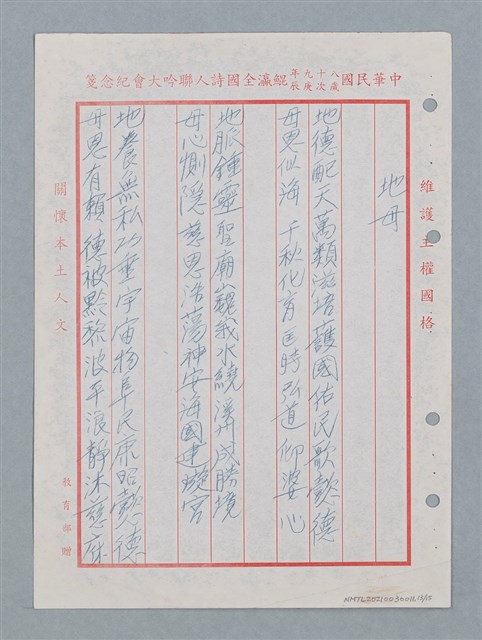 中華民國八十九年歲次庚辰鯤瀛全國詩人聯吟大會紀念箋
維護主權國格
地母
地德配天萬類滋培護國佑民歌懿德
母恩似海千秋化育匡時弘道仰婆心
地脈鍾靈聖廟巍峩水繞溪州成勝境
母心惻隱慈恩浩蕩神安海國建璇宮
地養無私功垂宇宙物阜民康昭懿德
母恩有賴德被黔黎波平浪靜沐慈庥
關懷本土人文
教育部贈
NMTL20210030011.13/15